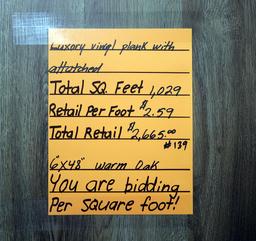 Luxory vinyl plank with
attatched
Total SQ. Feet 1,029
Retail Per Foot $2.59
Total Retail $2,665.00
#139
6x48" warm Oak
You are bidding
Per square foot!